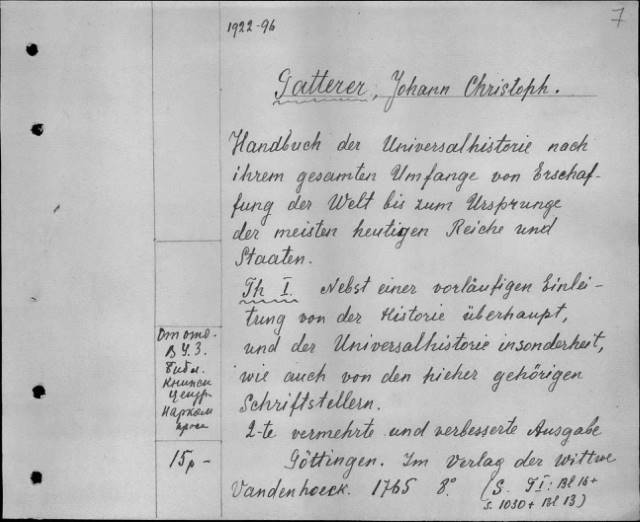 7
1922-96
Gatterer, Johann Christoph.
Handbuch der Universalhistorie nach
ihrem gesamten Umfange von Erschaf-
fung der Welt bis zum Ursprunge
der meisten heutigen Reiche und
Staaten.
Th I. Nebst einer vorläufigen Einlei-
tung von der Historie überhaupt,
und der Universalhistorie insonderheit,
wie auch von den hieher gehörigen
Schriftstellern.
2-te vermehrte und verbesserte Ausgabe
Göttingen. Im Verlag der Wittwe
Vandenhoeck. 1765 8° (S. TI: Bl 16+
S. 1030 + Bl 13)
В У.З.
Библ.
Книжн
Цензур
Нарком
проса
15р-